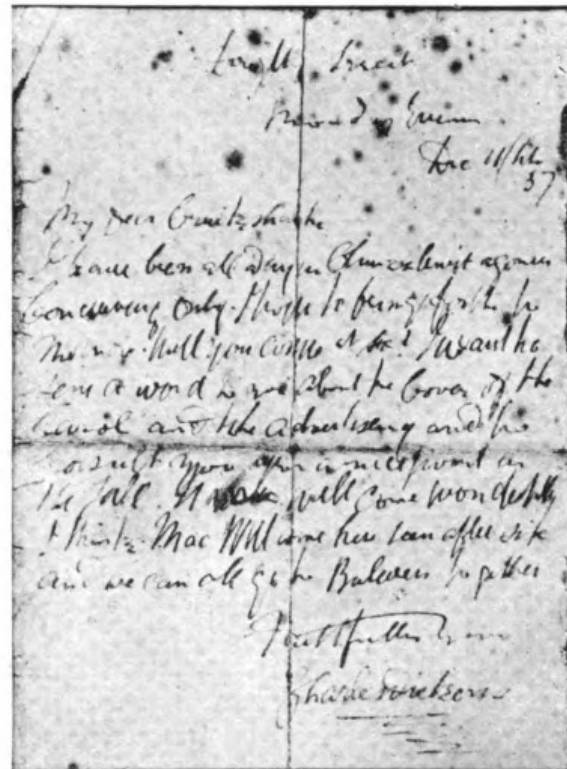 Street
Dec
37
My dear Cruikshank
I have been all day in Chuzzlewit agonies
Conceiving only. I hope to bring forth to
morrow. Will you come at six? I want to
a word or two about the Cover of the
Carol and the advertising and to
consult you upon a nice point in
the tale. It will come wondrously
I think. Mac Will come here soon after six
and we can all go to Bulwers together
Faithfully Yours
Charles Dickens